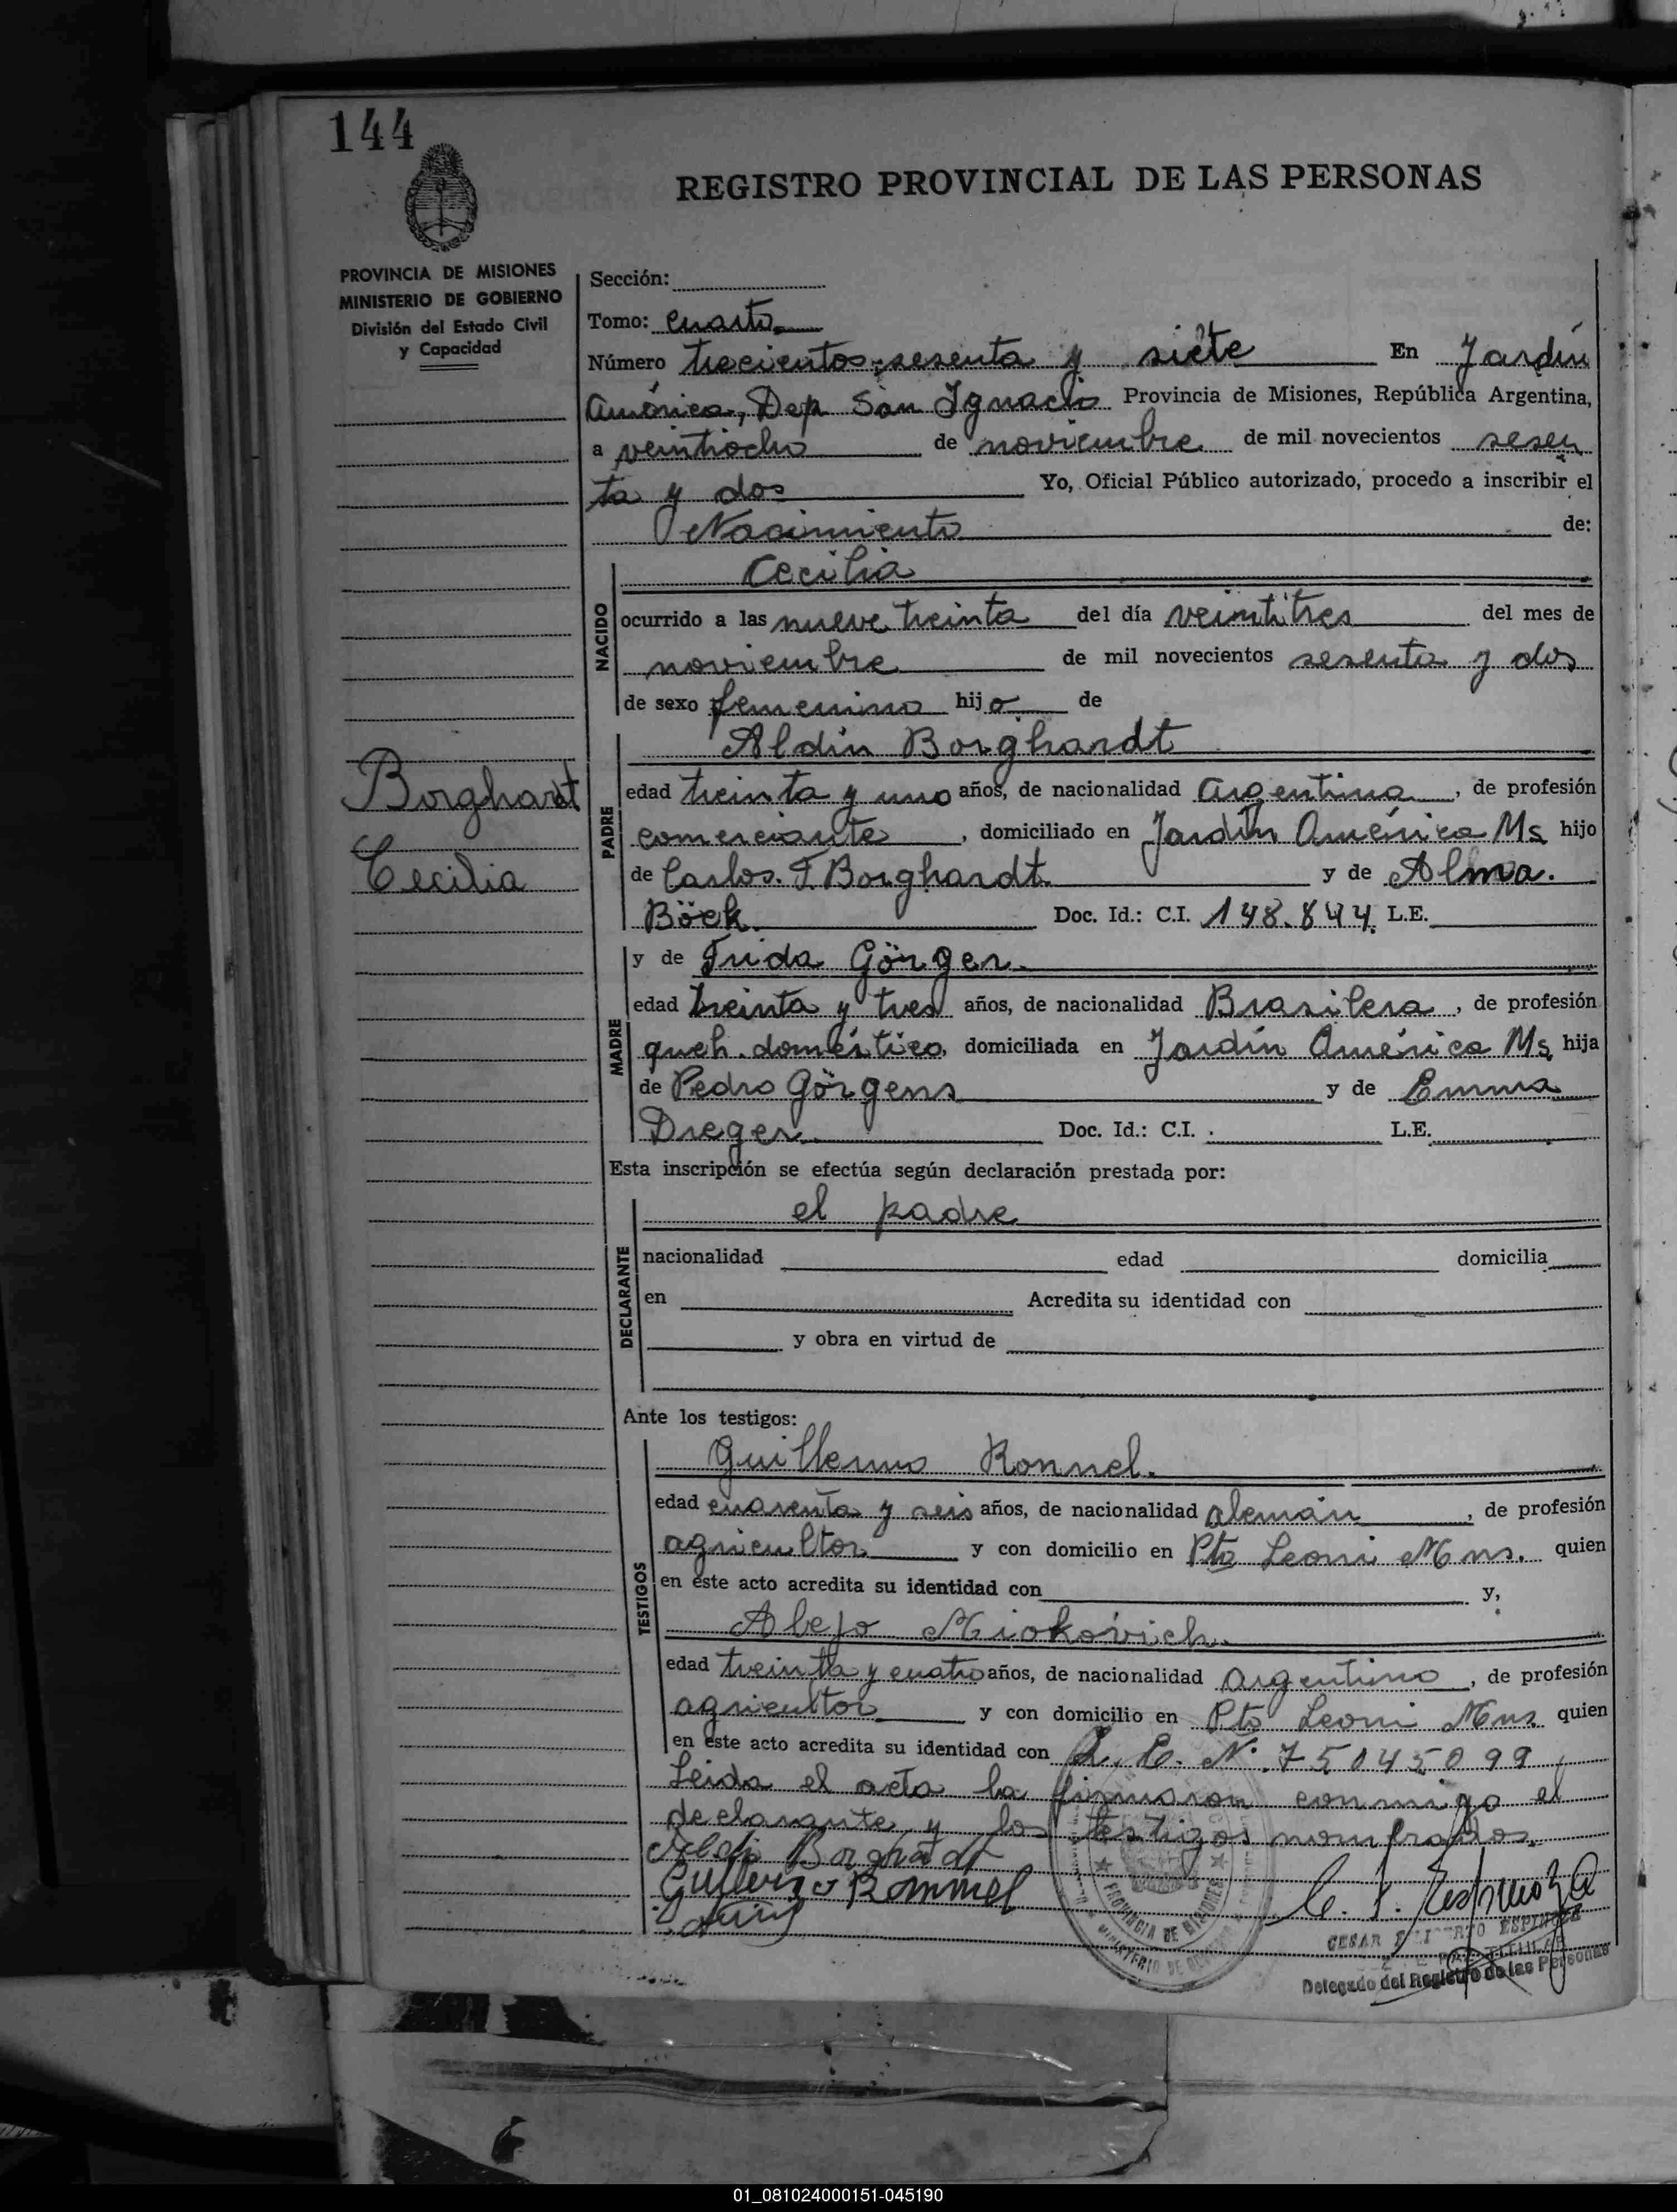 144
REGISTRO PROVINCIAL DE LAS PERSONAS
PROVINCIA DE MISIONES
MINISTERIO DE GOBIERNO
División del Estado Civil
y Capacidad
Sección:
Tomo: cuarto
Número trecientos sesenta y siete En Jardín
América, Dep San Ignacio Provincia de Misiones, República Argentina,
a veintiocho de noviembre de mil novecientos sesen
ta y dos Yo, Oficial Público autorizado, procedo a inscribir el
Nacimiento de:
NACIDO
Cecilia
ocurrido a las nueve treinta del día veintitres del mes de
noviembre de mil novecientos sesenta y dos
de sexo femenino hija de
Borghardt
Cecilia
PADRE
Aldin Borghardt
edad treinta y uno años, de nacionalidad Argentina, de profesión
comerciante, domiciliado en Jardín América Ms hijo
de Carlos. F. Borghardt y de Alma.
Böck. Doc. Id.: C.I. 148.844. L.E.
MADRE
y de Frida Görgen.
edad treinta y tres años, de nacionalidad Brasilera, de profesión
queh. doméstico, domiciliada en Jardín América Ms hija
de Pedro Görgens y de Emma
Dreger. Doc. Id.: C.I. L.E.
Esta inscripción se efectúa según declaración prestada por:
DECLARANTE
el padre
nacionalidad edad domicilia
en Acredita su identidad con
y obra en virtud de
Ante los testigos:
TESTIGOS
Guillermo Rommel.
edad cuarenta y seis años, de nacionalidad alemán, de profesión
agricultor y con domicilio en Pto Leoni Mns. quien
en este acto acredita su identidad con y,
Alejo Miokovich.
edad treinta y cuatro años, de nacionalidad argentino, de profesión
agricultor y con domicilio en Pto Leoni Mns. quien
en este acto acredita su identidad con L. E. N. 75045099
Leida el acta la firmaron conmigo el
declarante y los testigos nombrados.
Borghardt
Guillermo Rommel
PROVINCIA DE MISIONES
C. I. Espinoza
CESAR ESPINOZA
TITULAR
Delegado del Registro de las Personas
01_081024000151-045190